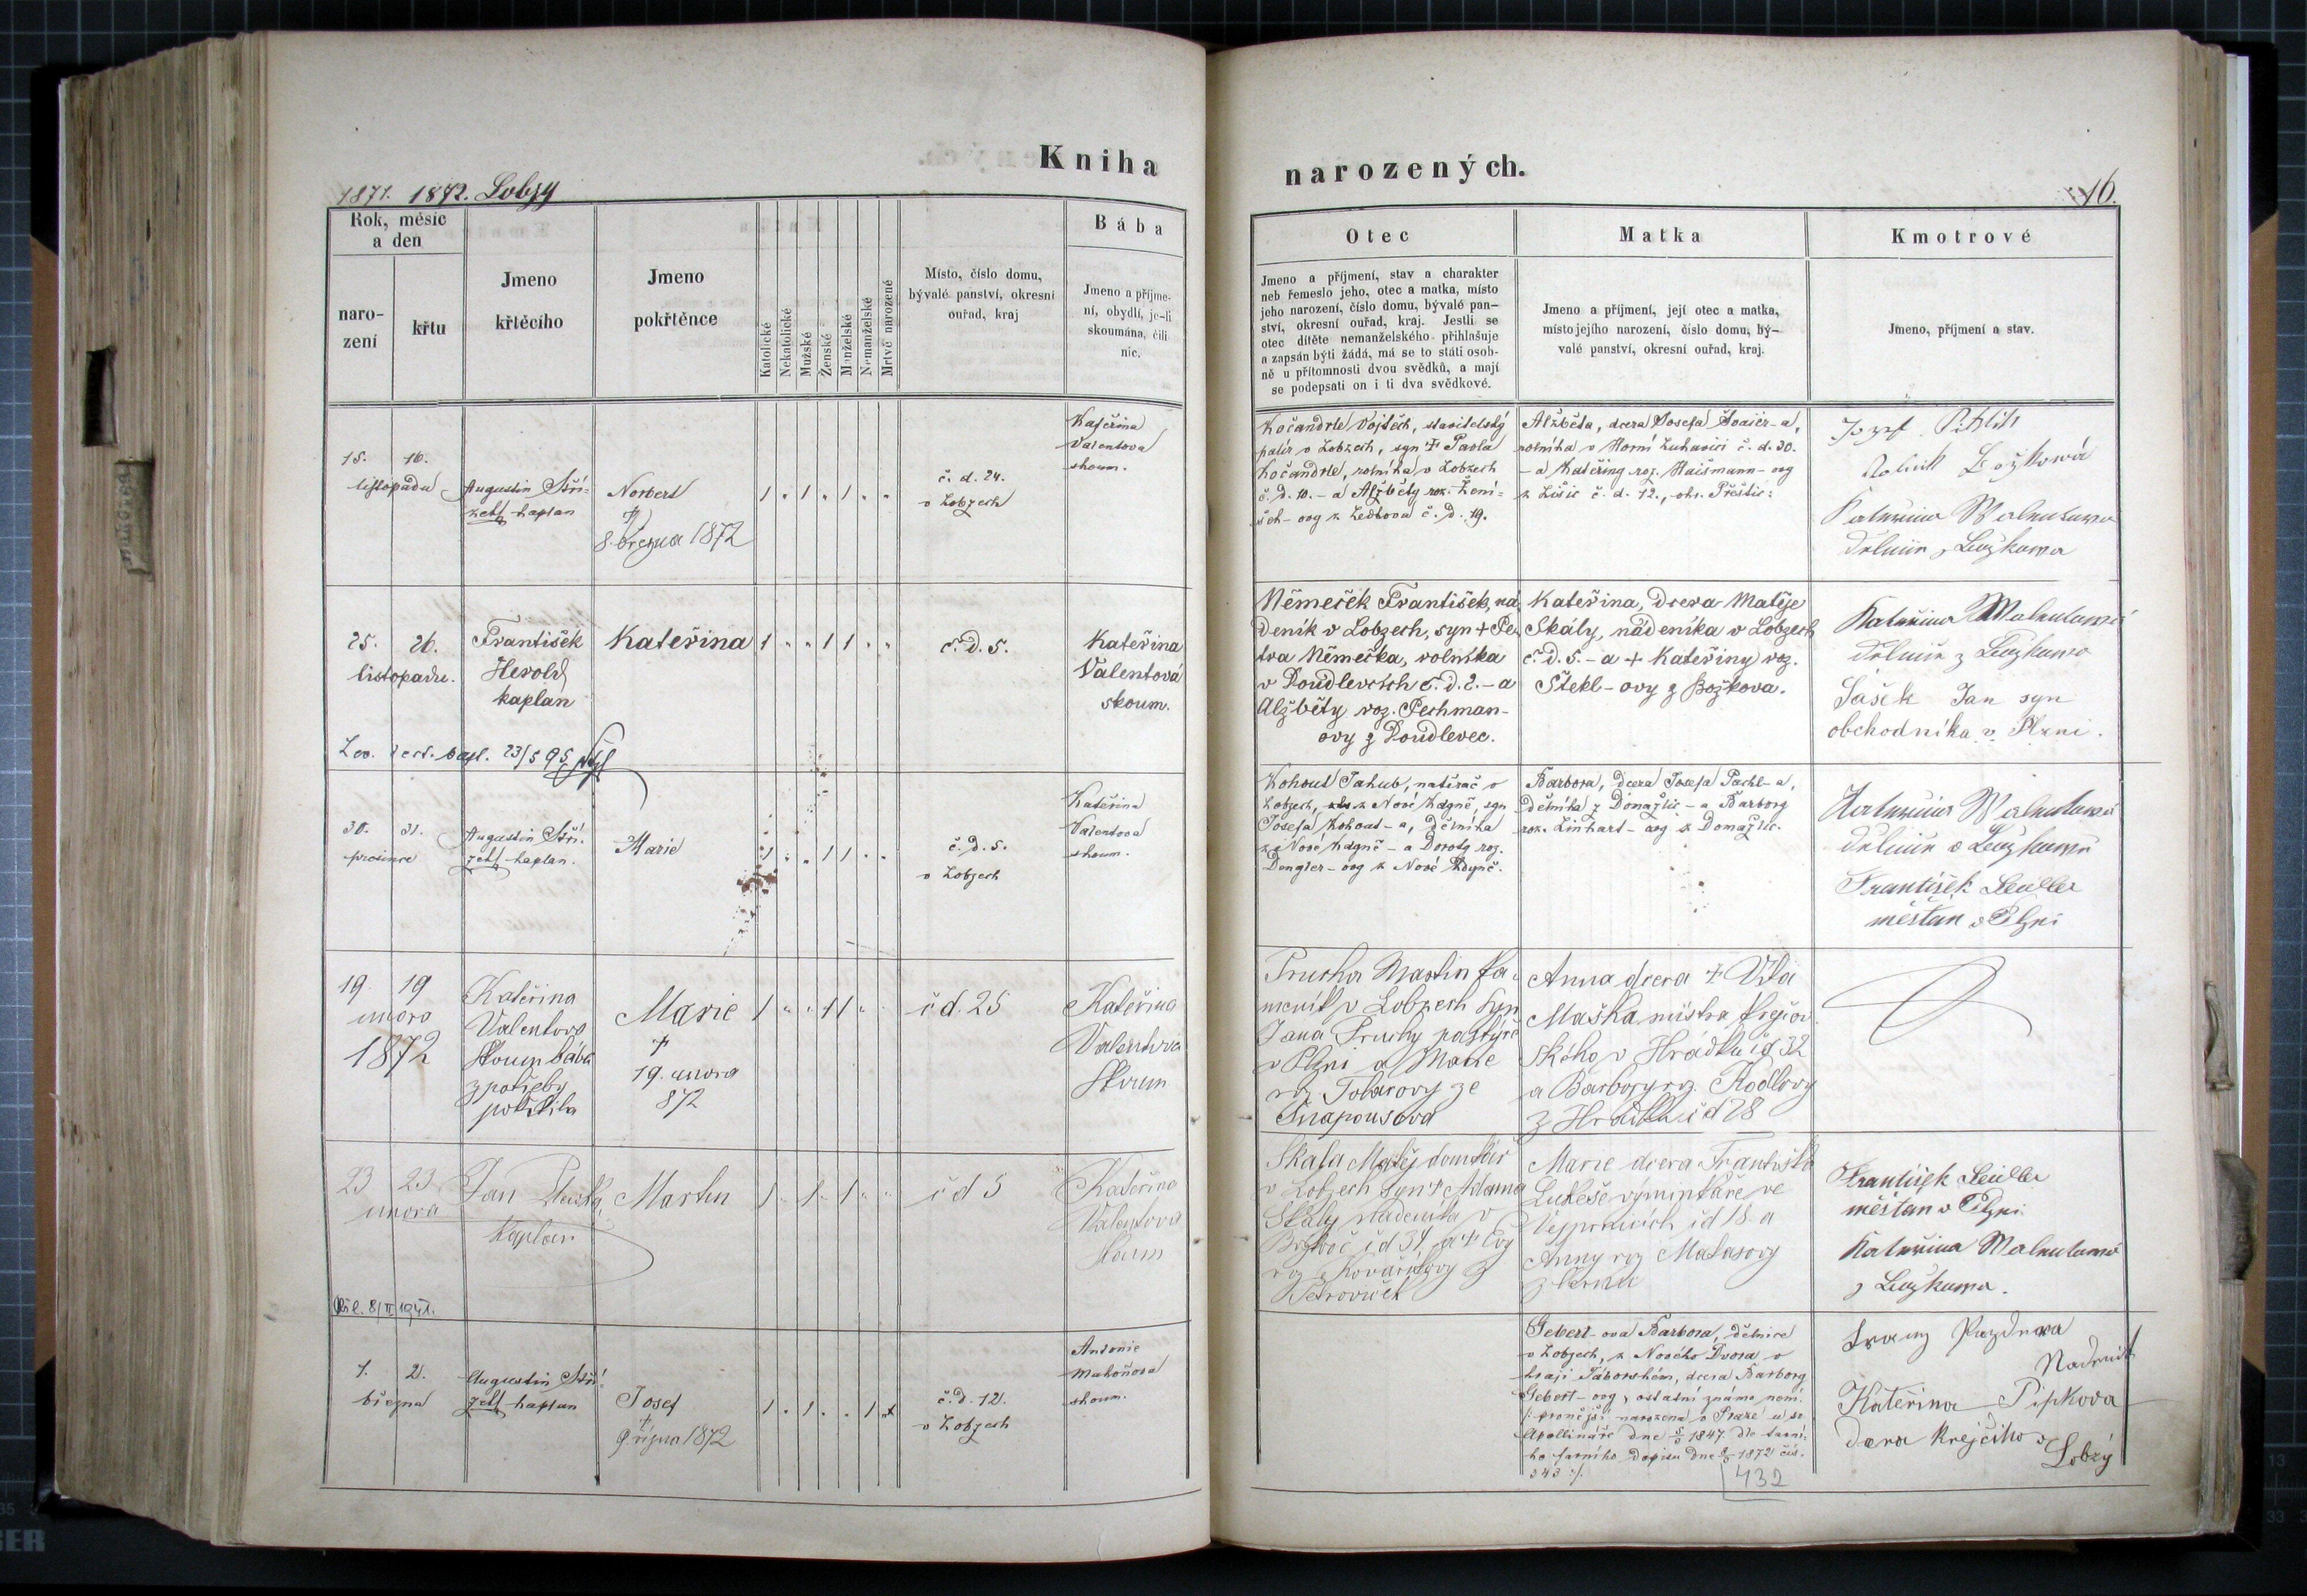 Kniha
narozených.
1871. 1872. Lobzy
16.
Rok, měsíc
a den
naro-
zení
křtu
Jmeno
křtěcího
Jmeno
pokřtěnce
Katolické
Nekatolické
Mužské
Ženské
Manželské
Nemanželské
Mrtvě narozené
Místo, číslo domu,
bývalé panství, okresní
ouřad, kraj
Bába
Jmeno a příjme-
ní, obydlí, je-li
skoumána, čili
nic.
Otec
Jmeno a příjmení, stav a charakter
neb řemeslo jeho, otec a matka, místo
jeho narození, číslo domu, bývalé pan-
ství, okresní ouřad, kraj. Jestli se
otec dítěte nemanželského přihlašuje
a zapsán býti žádá, má se to státi osob-
ně u přítomnosti dvou svědků, a mají
se podepsati on i ti dva svědkové.
Matka
Jmeno a příjmení, její otec a matka,
místo jejího narození, číslo domu, bý-
valé panství, okresní ouřad, kraj.
Kmotrové
Jmeno, příjmení a stav.
15. 16.
listopadu
Augustin Stří-
zek kaplan
Norbert
†
8. března 1872
1 " 1 " 1 " "
č. d. 24.
v Lobzech
Kateřina
Valentova
skoum.
Kočandrle Vojtěch, stavitelský
palír v Lobzech, syn † Pavla
Kočandrle, rolníka v Lobzech
č. d. 10. - a Alžběty roz.
z Ledkova č. d. 19.
Alžběta, dcera Josefa
rolníka v Horní Lukavici č. d. 30.
- a Kateřiny roz. Haišmann-ovy
z Lišic č. d. 12., okr. Přeštic:
25. 26.
listopadu.
František
Herold
kaplan
Kateřina
1 " " 1 1 " "
č. d. 5.
Kateřina
Valentová
skoum.
Němeček František, ná-
deník v Lobzech, syn + Pe-
tra Němečka, rolníka
v Doudlevcích č. d. 2. - a
Alžběty roz. Pechman-
ovy z Doudlevec.
Kateřina, dcera Matěje
Skály, nádeníka v Lobzech
č. d. 5. - a + Kateřiny roz.
Štekl-ovy z Božkova.
Kateřina Walentowá
Sášek Jan syn
obchodníka v Plzni.
23/5 95
30. 31.
prosince
Augustin Stří-
zek kaplan.
Marie
1 " " 1 1 " "
č. d. 5.
v Lobzech
Kateřina
Valentova
skoum.
Kohout Jakub, natěrač v
Lobzech, z Nové Kdyně, syn
Josefa Kohout-a, dělníka
z Nové Kdyně - a Doroty roz.
Dengler-ovy z Nové Kdyně.
Barbora, dcera Josefa Pachl-a,
dělníka z Domažlic - a Barbory
roz. Linhart-ovy z Domažlic.
Kateřina Walentowá
František Seidler
měšťan v Plzni
19 19
unora
1872
Kateřina
Valentova
skoum bába
z potřeby
pokřtila
Marie
†
19. unora
872
1 " " 1 1 " "
č d. 25
Kateřina
Valentova
Skoum
Prucha Martin ka-
meník v Lobzech syn
Jana Pruchy pastýře
v Plzni a Marie
roz Tolarovy ze
Šnapousova
Anna dcera † Víta
Maška mistra krejčov
ského v Hrádku čd 32
a Barbory roz. Rodlovy
z Hrádku č d 28
23 23
unora
Jan
kaplan
Martin
1 " 1 " 1 " "
č d 5
Kateřina
Valentova
skoum
Skala Matěj domkář
v Lobzech syn † Adama
Skály nádeníka v
č d 31 a † Evy
roz Kovaříkovy z
Petrovič
Marie dcera Františka
Lukeše výminkáře ve
Vejprnicích č d 18 a
Anny roz Matasovy
František Seidler
měšťan v Plzni
Kateřina Walentowá
1. 2.
března
Augustin Stří-
zek kaplan
Josef
†
9 října 1872
1 " 1 " " 1
č. d. 12.
v Lobzech
Antonie
skoum.
Gebert-ova Barbora, dělnice
v Lobzech, z Nového Dvora v
kraji Táborském, dcera Barbory
Gebert-ovy, ostatní známo není.
narozena v Praze u sv.
Apollináře dne 1847. dle
farního dopisu dne 1872 čís.
343 :/.
432
Franz
Kateřina Pipkova
dcera krejčího v
Lobzý